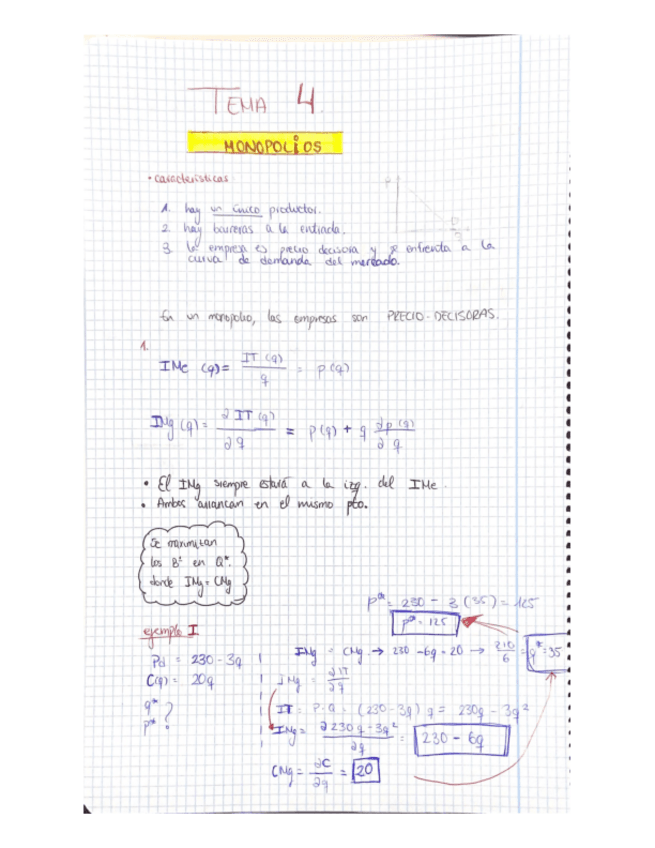 TEMA 4.
MONOPOLiOS
• características
P
1. hay un único productor.
2. hay barreras a la entrada.
D
3. la empresa es precio decisora y se enfrenta a la
curva de demanda del mercado.
En un monopolio, las empresas son PRECIO-DECISORAS.
1.
IMe (q) = IT (q) / q = p(q)
IMg (q) = ∂ IT (q) / ∂ q = p(q) + q ∂p (q) / ∂ q
• El IMg siempre estará a la izq. del IMe.
• Ambos arrancan en el mismo pto.
Se maximizan
los Bº en Q*.
donde IMg = CMg
p* = 230 - 3 (35) = 125
p* = 125
ejemplo I
IMg = CMg → 230 - 6q = 20 → 210 / 6 = q* = 35
Pd = 230 - 3q
C(q) = 20q
q*
p* ?
IMg = ∂IT / ∂q
IT = P·Q = (230 - 3q) q = 230q - 3q²
IMg = ∂ 230q - 3q² / ∂q = 230 - 6q
CMg = ∂C / ∂q = 20